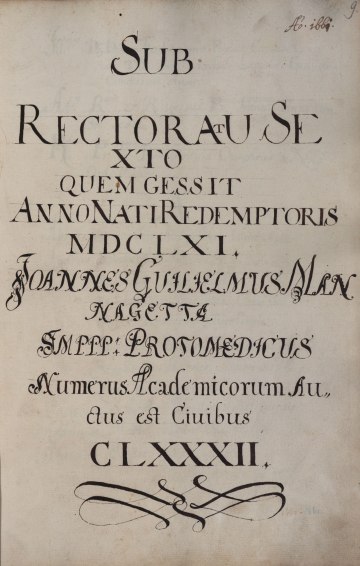 9
Ao. 1661.
SUB
RECTORATU SE
XTO
QUEM GESSIT
ANNO NATI REDEMPTORIS
MDCLXI.
JOANNES GUILIELMUS MAN
NAGETTA
IMPPP: PROTOMEDICUS
Numerus Academicorum Au„
ctus est Civibus
CLXXXII.